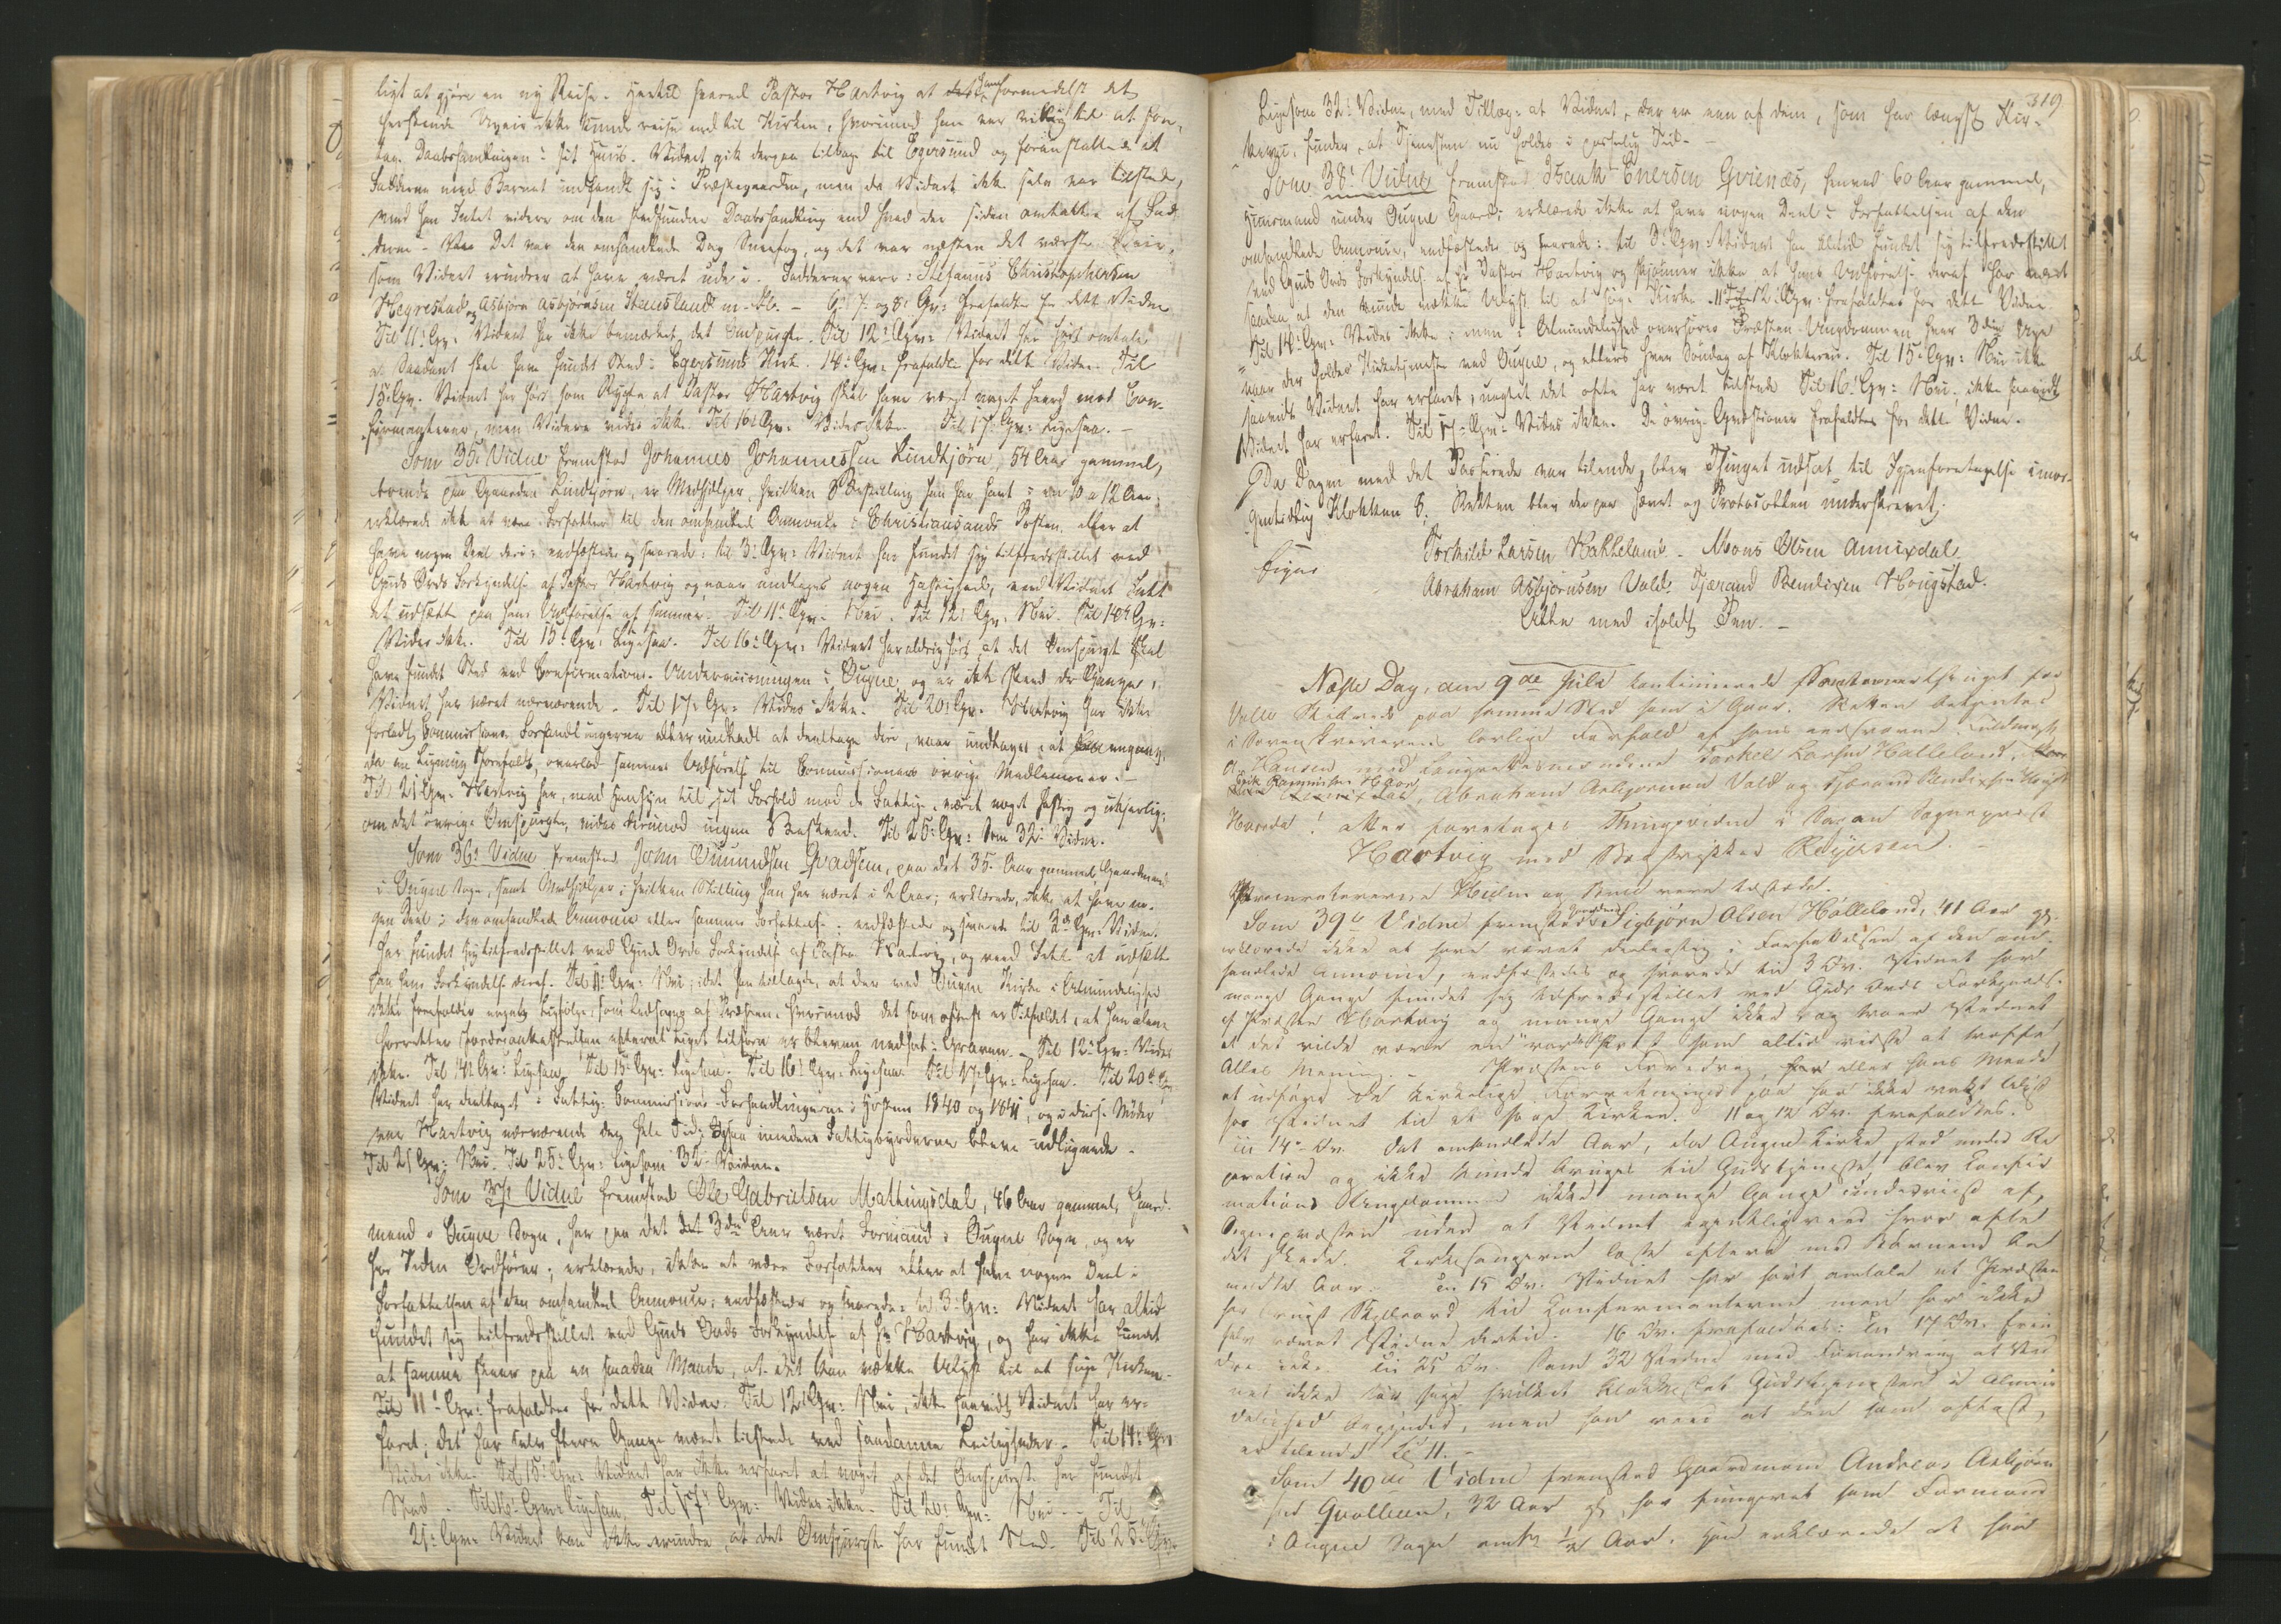 ligt at gjøre en ny Reise. Hertil svared Pastor Hartvig at han formedelst det
herskende Uveir ikke kunde reise ned til Kirken, hvorimod han var villig til at fore-
tage Daabshandlingen i sit Huus. Vidnet gik derpaa tilbage til Egersund og foranstaltede at
Fadderne med Barnet indfandt sig i Præstegaarden, men da Vidnet ikke selv var tilstede,
veed han Intet videre om den stedfundne Daabshandling end hvad der siden omtaltes af Fad-
derne. Det var den omhandlede Dag Sneefog, og det var næsten det værste Veir,
som Vidnet erindrer at have været ude i. Fadderne vare: Stefanus Christophersen
Hegrestad og Asbjørn Asbjørnsen m. fl. – 6, 7 og 8 Qv: frafaldtes for dette Vidne
Til 11. Qv: Vidnet har ikke bemærket det Omspurgte. Til 12. Qv: Vidnet har hørt omtale
at Saadant skal have fundet Sted i Egersunds Kirke. 14. Qv: frafaldtes for dette Vidne. Til
15. Qv: Vidnet har hørt som Rygte at Pastor Hartvig skal have været noget haard mod Con-
firmanterne, men Videre vides ikke. Til 16. Qv: Vides ikke. Til 17. Qv: Ligesaa. –
Som 35. Vidne fremstod Johannes Johannessen Lindtjørn, 54 Aar gammel,
boende paa Gaarden Lindtjørn, er Medhjælper, hvilken Bestilling han har havt i en 10 a 12 Aar;
erklærede ikke at være Forfatter til den omhandlede Annonce i Christiansands Posten eller at
have nogen Deel deri; eedfæstedes og svarede: til 3. Qv: Vidnet har fundet sig tilfredsstillet ved
Guds Ords Forkyndelse af Pastor Hartvig og, naar undtages nogen Hastighed, veed Vidnet Intet
at udsætte paa hans Udførelse af samme. Til 11. Qv. Nei. Til 12. Qv. Nei. Til 14. Qv:
Vides ikke. Til 15. Qv: Ligesaa. Til 16. Qv: Vidnet har aldrig hørt, at det Omspurgte skal
have fundet Sted ved Confirmations-Underviisningen i Øugne, og er ikke skeed de Gange,
Vidnet har været nærværende. Til 17. Qv: Vides ikke. Til 20. Qv. Hartvig har ikke
forladt Commissions Forhandlingerne eller undladt at deeltage deri, naar undtages at han engang,
da en Ligning forefaldt, overlod sammes Udførelse til Commissionens øvrige Medlemmer. –
Til 21. Qv. Hartvig har, med Hensyn til sit Forhold mod de Fattige, været noget hastig og ukjærlig;
om det øvrige Omspurgte, vides derimod ingen Beskeed. Til 25. Qv: Som 32. Vidne.
Som 36. Vidne fremstod John Omundsen Qvadsem, paa det 35. Aar gammel, Gaardmand
i Øugne Sogn, samt Medhjælper, i hvilken Stilling han har været i 2 Aar; erklærede, ikke at have no-
gen Deel i den omhandlede Annonce eller sammes Forfattelse; eedfæstedes og svarede til 3. Qv: Vidnet
har fundet sig tilfredsstillet ved Guds Ords Forkyndelse af Pastor Hartvig, og veed Intet at udsætte
paa hans Forkyndelse deraf. Til 11. Qv: Nei; idet han tillagde, at der ved Øugne Kirke i Almindelighed
ikke forefalder noget Liigfølge, som ledsages af Præsten, hvorimod det som oftest er Tilfældet, at han alene
forretter Jordpaakastelsen efterat Liget tilforn er bleven nedsat i Graven. – Til 12. Qv: Vides
ikke. Til 14. Qv: Ligesaa. Til 15. Qv: Ligesaa. Til 16. Qv: Ligesaa. Til 17. Qv: Ligesaa. Til 20. Qv:
Vidnet har deeltaget i Fattig-Commissions-Forhandlingerne i Høsten 1840 og 1841, og i disse Møder
var Hartvig nærværende den hele Tid, ogsaa imedens Fattigbyrderne bleve udlignede. –
Til 21 Qv: Nei. Til 25. Qv: Ligesom 32. Vidne.
Som 37. Vidne fremstod Ole Gabrielsen Mathingsdal, 46 Aar gammel, Gaard-
mand i Øugne Sogn, har paa det 3die Aar været Formand i Øugne Sogn og er
for Tiden Ordfører; erklærede, ikke at være Forfatter eller at have nogen Deel i
Forfattelsen af den omhandlede Annonce; eedfæstedes og svarede: til 3. Qv: Vidnet har altid
fundet sig tilfredsstillet ved Guds Ords Forkyndelse af Hr Hartvig, og har ikke fundet
at samme skeer paa en saadan Maade, at det kan vække Ulyst til at søge Kirken. –
Til 11. Qv: frafaldtes for dette Vidne. Til 12. Qv: Nei, ikke saavidt Vidnet har er-
faret; det har selv flere Gange været tilstede ved saadanne Leiligheder. Til 14. Qv:
Vides ikke. Til 15. Qv: Vidnet har ikke erfaret at noget af det Omspurgte har fundet
Sted. Til 16. Qv: Ligesaa. Til 17. Qv: Vides ikke. Til 20. Qv: Nei. – Til
21. Qv: Vidnet kan ikke erindre, at det Omspurgte har fundet Sted. Til 25. Qv:
319
Ligesom 32. Vidne, med Tillæg: at Vidnet, der er een af dem, som har længst Kir-
kevei, finder, at Tjenesten nu holdes i passelig Tid. –
Som 38. Vidne fremstod Isaak Enersen Gvienæs, henved 60 Aar gammel,
Huusmand under Øugne Gaard; erklærede ikke at have nogen Deel i Forfattelsen af den
omhandlede Annonce, eedfæstedes og svarede: til 3. Qv: Vidnet har altid fundet sig tilfredsstillet
ved Guds Ords Forkyndelse af Hr Pastor Hartvig og skjønner ikke at hans Udførelse deraf har været
saadan at den kunde vække Ulyst til at søge Kirke. 11 og 12. Qv: frafaldtes for dette Vidne
Til 14. Qv: Vides ikke; men i Almindelighed overhører Præsten Ungdommen hver 3die Uge
naar der holdes Kirketjeneste ved Øugne, og ellers hver Søndag af Klokkeren. Til 15. Qv: Nei ikke
saavidt Vidnet har erfaret, uagtet det ofte har været tilstede Til 16. Qv: Nei, ikke saavidt
Vidnet har erfaret. Til 17. Qv: Vides ikke. De øvrige Qvæstioner frafaldtes for dette Vidne.
Da Dagen med det Passerede var tilende, blev Thinget udsat til Igjenforetagelse imor-
gentidlig Klokken 8. Retten blev derpaa hævet og Protocollen underskrevet.
Torkild Larsen Hakkeland. Mons Olsen Annixdal
Abraham Asbjørnsen Vald. Tjærand Bendixen Hougstad.
Alle med iholdt Pen. –
Næste Dag, den 9de Julii kontinuerede for
Velle Skibreds paa samme Sted som i Gaar. Retten betjentes
i Sorenskriverens lovlige Forfald af hans eedsvorne Fuldmægtig
Hansen med Laugrettesmændene Torkel Larsen Halleland,
Abraham Asbjørnsen Vald og Tjærand Bendixsen
! atter foretoges Thingsvidnet i Sagen Sognepræst
Hartvig mod Bogtrykker Reyersen. –
Procuratorerne Heilm og vare tilstæde.
Som 39te Vidne fremstod Gaardmand Sigbjørn Olsen Hølleland, 41 Aar gl.
erklærede ikke at have været deelagtig i Forfattelsen af den om-
handlede Annonce, eedfæstedes og svarede til 3 Qv. Vidnet har
mange Gange fundet sig tilfredsstillet ved Guds Ords Forkyndelse
af Præsten Hartvig og mange Gange ikke og troer Vidnet
at det vilde være en rar Præst som altid vidste at træffe
Alles Mening. – Præstens Foredrag, eller hans Maade
at udføre de kirkelige Forretninger paa har ikke vakt Ulyst
hos Vidnet til at søge Kirken. 11 og 12 Qv. frafaldtes.
Til 14. Qv. Det omhandlede Aar, da Øugne Kirke stod under Re
peration og ikke kunde bruges til Gudstjeneste, blev Confir
mations Ungdommen ikke mange Gange underviist af
Sognepræsten uden at Vidnet egentlig veed hvor ofte
det skede. Kirkesangeren læste oftere med Børnene be
meldte Aar. Til 15 Qv. Vidnet har hørt omtale at Præsten
har brugt Skjeldsord til Confirmanterne men har ikke
selv været Vidne dertil. 16 Qv. frafaldtes: Til 17 Qv. Erin
dre ikke Til 25 Qv. Som 32 Vidne med Forandring at Vid
net ikke kan sige hvilket Klokkeslet Gudstjenesten i Almin
delighed begynder, men han veed at den som oftest
er tilende Kl 11. –
Som 40de Vidne fremstod Gaardmand Andreas Asbjørn
sen Qvalleen, 32 Aar gl. har fungeret som Formand
i Øugne Sogn omtr ½ Aar. Han erklærede at have